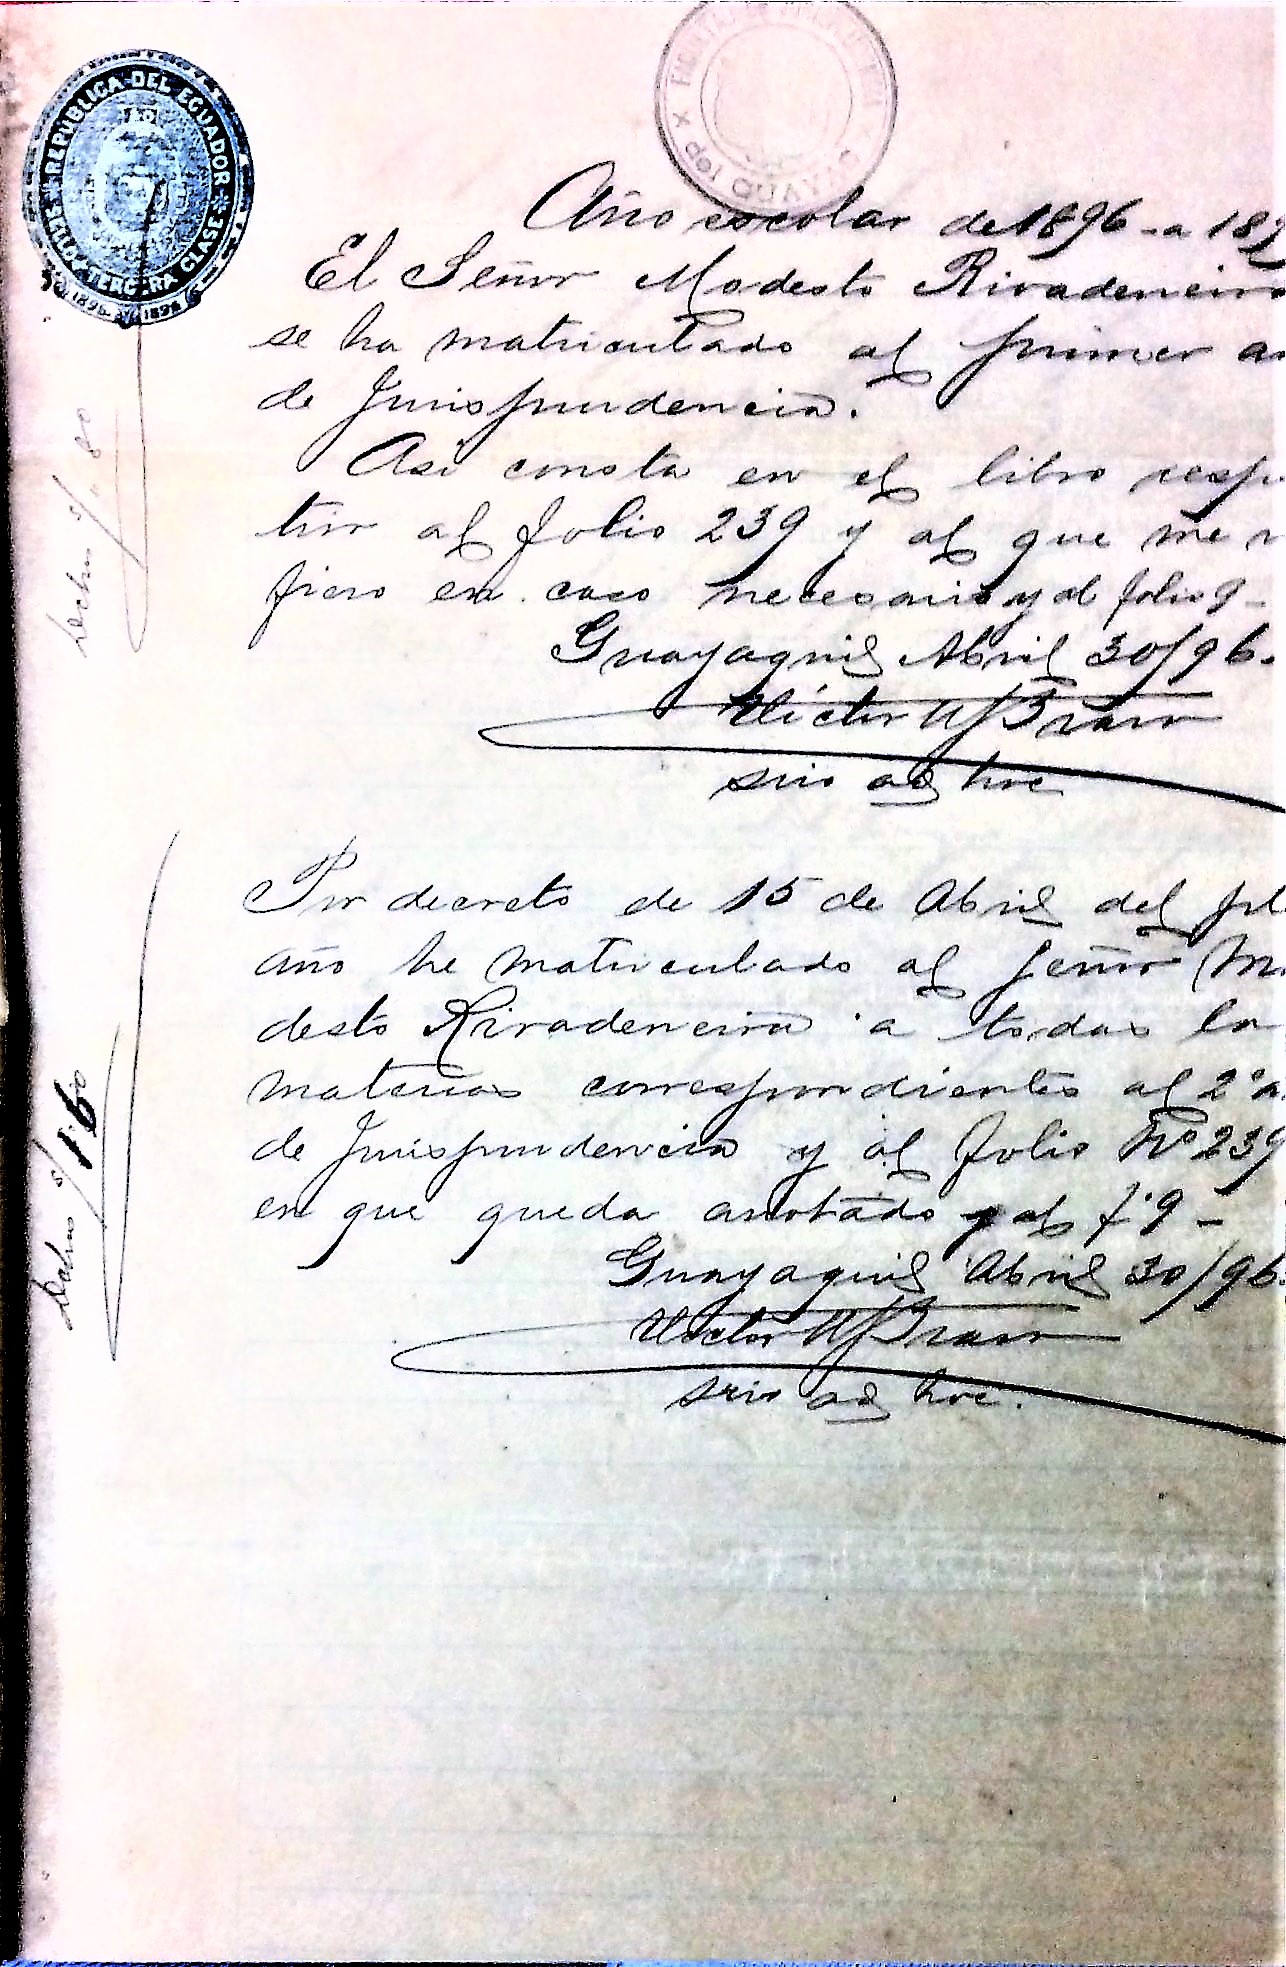 REPUBLICA DEL ECUADOR
SELLO TERCERA CLASE
Año escolar de 1896 - a 189
El Señor Modesto Rivadeneira
se ha matriculado al primer a
de Jurisprudencia.
Asi consta en el libro resp
tivo al folio 239 y al que me r
fiero en caso necesario y al folio 9 -
Guayaquil Abril 30/96.
srio ad hoc
Por decreto de 15 de Abril del
año he matriculado al Señor Mo
desto Rivadeneira a todas la
materias correspondientes al 2º a
de Jurisprudencia y al folio Nº 239
en que queda anotado y al f. 9 -
Guayaquil Abril 30/96.
srio ad hoc.
Dchos s/. 80
Dchos s/ 1.60